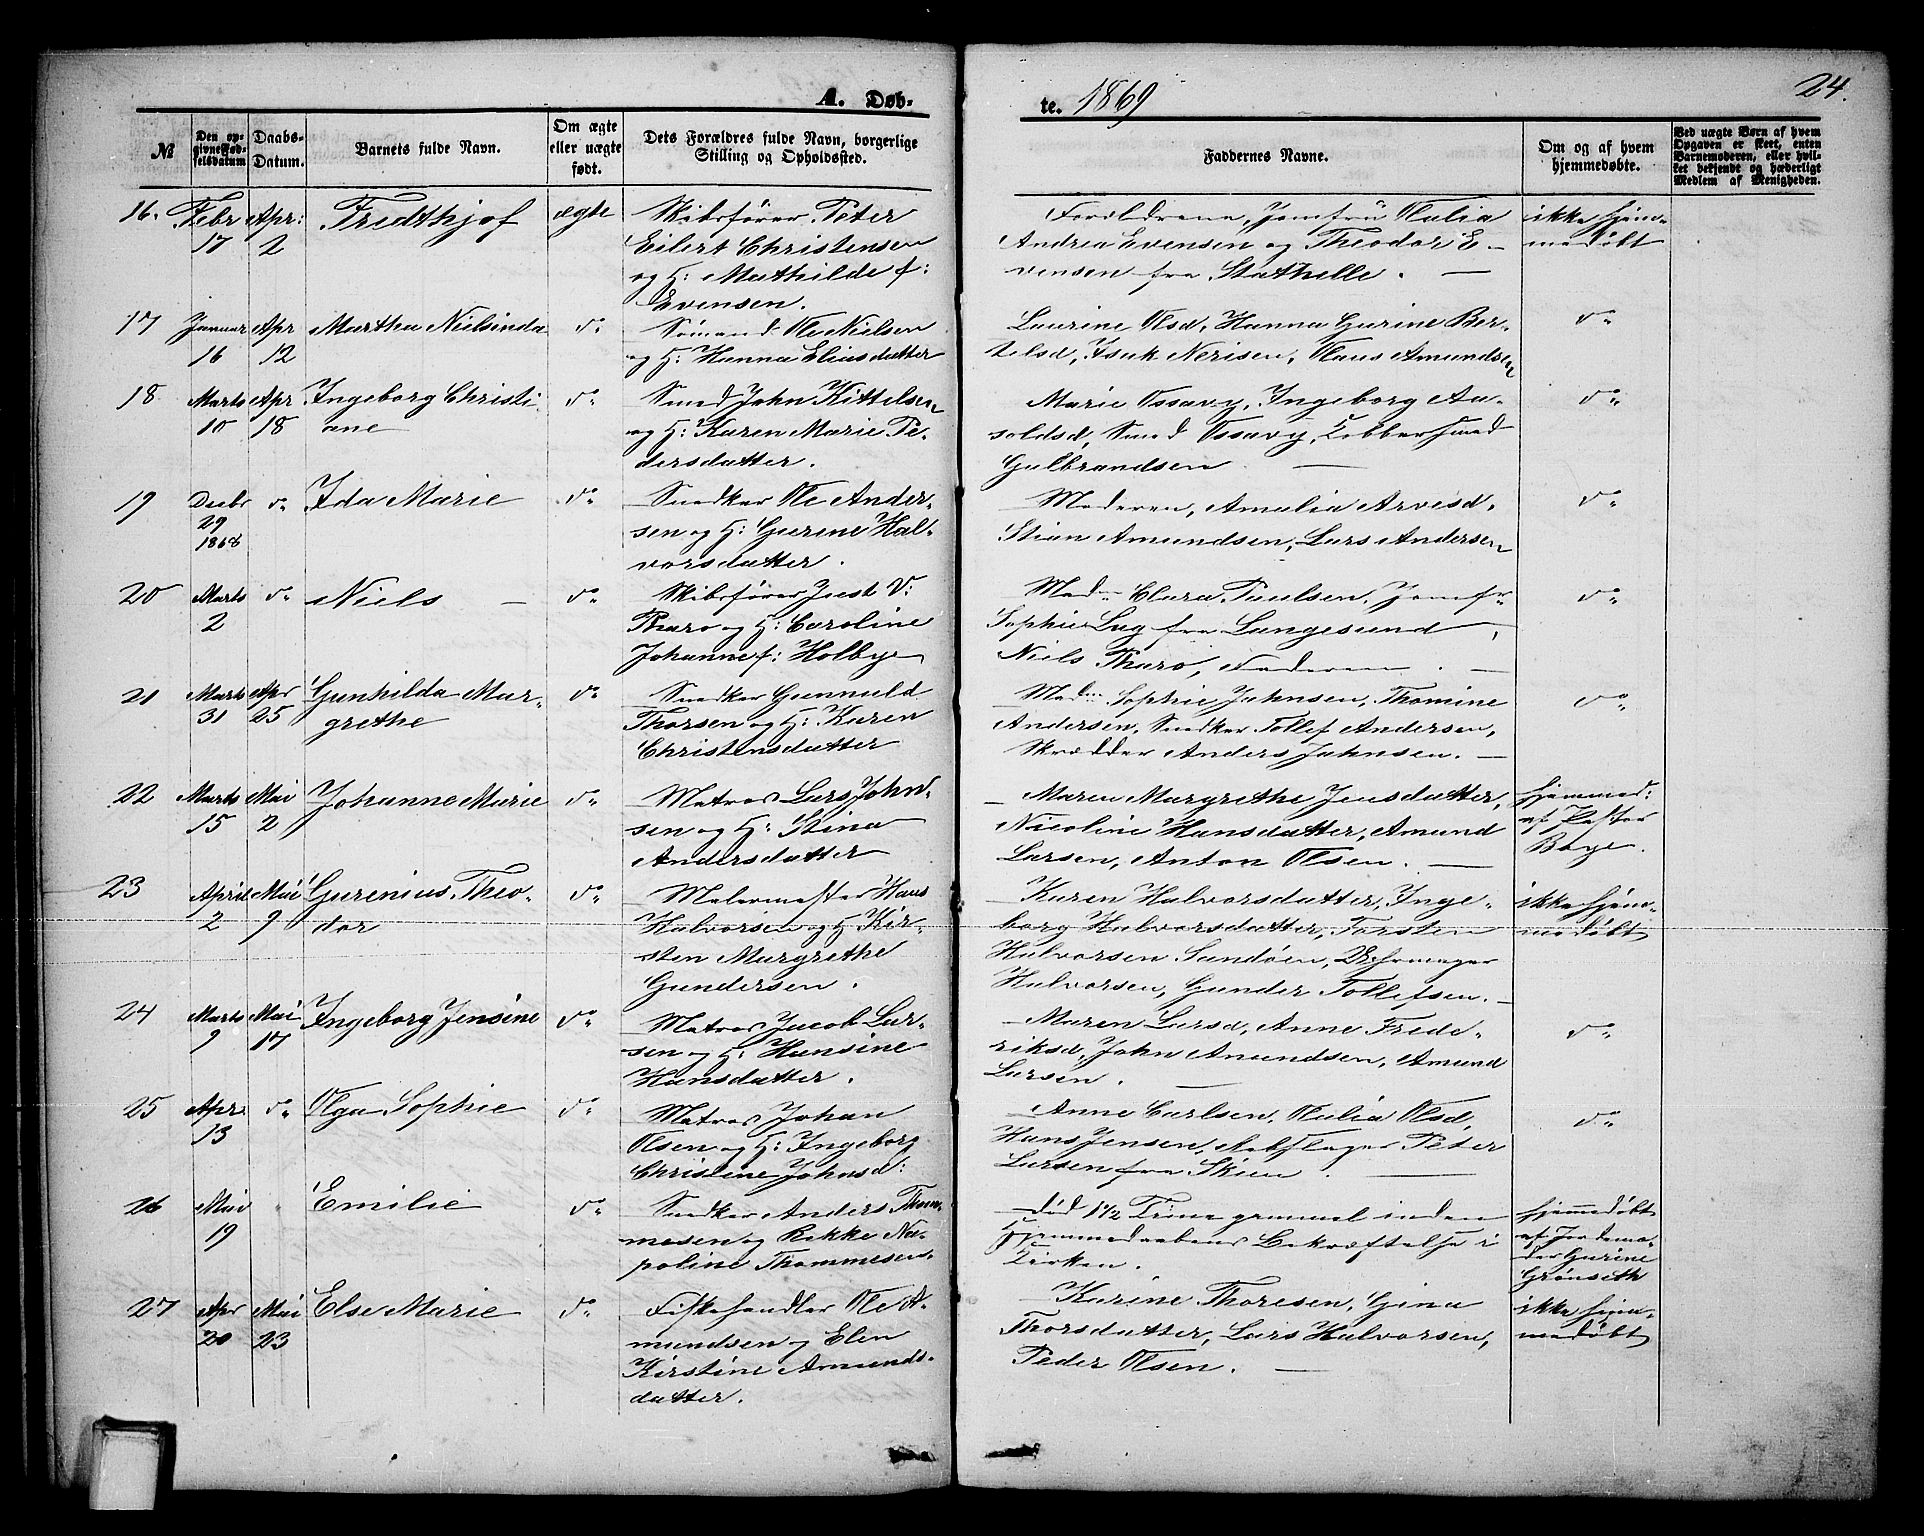 24.
A. Døb-
te. 1869
№
Den op-
givne Fød-
selsdatum
Daabs-
Datum.
Barnets fulde Navn.
Om ægte
eller uægte
født.
Dets Forældres fulde Navn, borgerlige
Stilling og Opholdssted.
Faddernes Navne.
Om og af hvem
hjemmedøbte.
Ved uægte Børn af hvem
Opgaven er skeet, enten
Barnemoderen, eller hvil-
ket bekjendt og hæderligt
Medlem af Menigheden.
16. Febr 17 Apr: 2 Fredthjof ægte
Skibsfører Peter
Eilert Christensen
og H: Mathilde f:
Evensen.
Forældrene, Jomfru Olalia
Andrea Evensen og Theodor E-
vensen fra Stathelle. —
ikke hjem-
medøbt
17 Januar 16 Apr 12 Martha Nielsinda do
Sømand Ole Nielsen
og H: Hanna Eliasdatter
Laurine Olsd, Hanna Gurine Ber-
telsd, Isak Nerisen, Claus Amundsen
do
18 Marts 10 Apr 18 Ingeborg Christi-
ane do
Smed John Kittelsen
og H: Karen Marie Pe-
dersdatter.
Marie Ossavy, Ingeborg Aa-
soldsd, Smed Ossavy, Kobbersmed
Gulbrandsen —
do
19 Decbr 29 1868 do Ida Marie do
Snedker Ole Ander-
sen og H: Gurine Hal-
vorsdatter.
Moderen, Amalia Arvesd.
Stian Amundsen, Lars Andersen
do
20 Marts 2 do Niels — do
Skibsfører Just V:
Tharo og H: Caroline
Johanne f: Holbye
Mad. Clara Paulsen, Jomfr
Sophie Lag fra Langesund,
Niels Tharo, Faderen. —
do
21 Marts 31 Apr 25 Gunhilda Mar-
grethe do
Snedker Gunnuld
Thorsen og H: Karen
Christensdatter
Mad. Sophie Jahnsen, Thomine
Andersen, Snedker Tollef Andersen,
Skrædder Anders Jahnsen. —
do
22 Marts 15 Mai 2 Johanne Marie do
Matros Lars John-
sen og H: Stina
Andersdatter
Maren Margrethe Jensdatter,
Nicoline Hansdatter, Amund
Larsen, Anton Olsen. —
hjemmed:
af Pastor
Boye.
23 April 2 Mai 9 Gurenius Theo-
dor do
Malermester Hans
Halvorsen og H Kir-
sten Margrethe
Gundersen.
Karen Halvorsdatter, Inge-
borg Halvorsdatter, Torsten
Halvorsen Sundøen,
Halvorsen, Gunder Tollefsen. —
ikke hjem-
medøbt
24 Marts 9 Mai 17 Ingeborg Jensine do
Matros Jacob Lar-
sen og H: Hansine
Hansdatter.
Maren Larsd, Anne Frede-
riksd, John Anundsen, Amund
Larsen. —
do
25 Apr 13 do Olga Sophie do
Matros Johan
Olsen og H: Ingeborg
Christine Johnsd:
Anne Carlsen, Olalia Olsd,
Hans Jensen, Rebslager Peter
Larsen fra Skien. —
do
26 Mai 19 " Emilie do
Snedker Anders Thom-
mesen og Rikke Na-
poline Thommesen.
død 1½ Time gammel inden
Hjemmedaabens Bekræftelse i
Kirken.
hjemmedøbt
af Jordemo-
der Gurine
Grønseth
27 Apr 20 Mai 23 Else Marie do
Fiskehandler Ole A-
mundsen og Elen
Kirstine Amunds-
datter.
Karine Thoresen, Gina
Thorsdatter, Lars Halvorsen,
Peder Olsen. —
ikke hjem-
medøbt